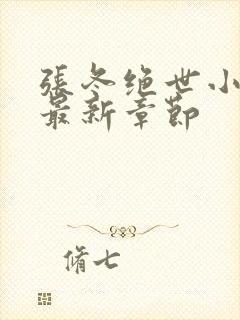 張冬绝世小
最新章節
脩七